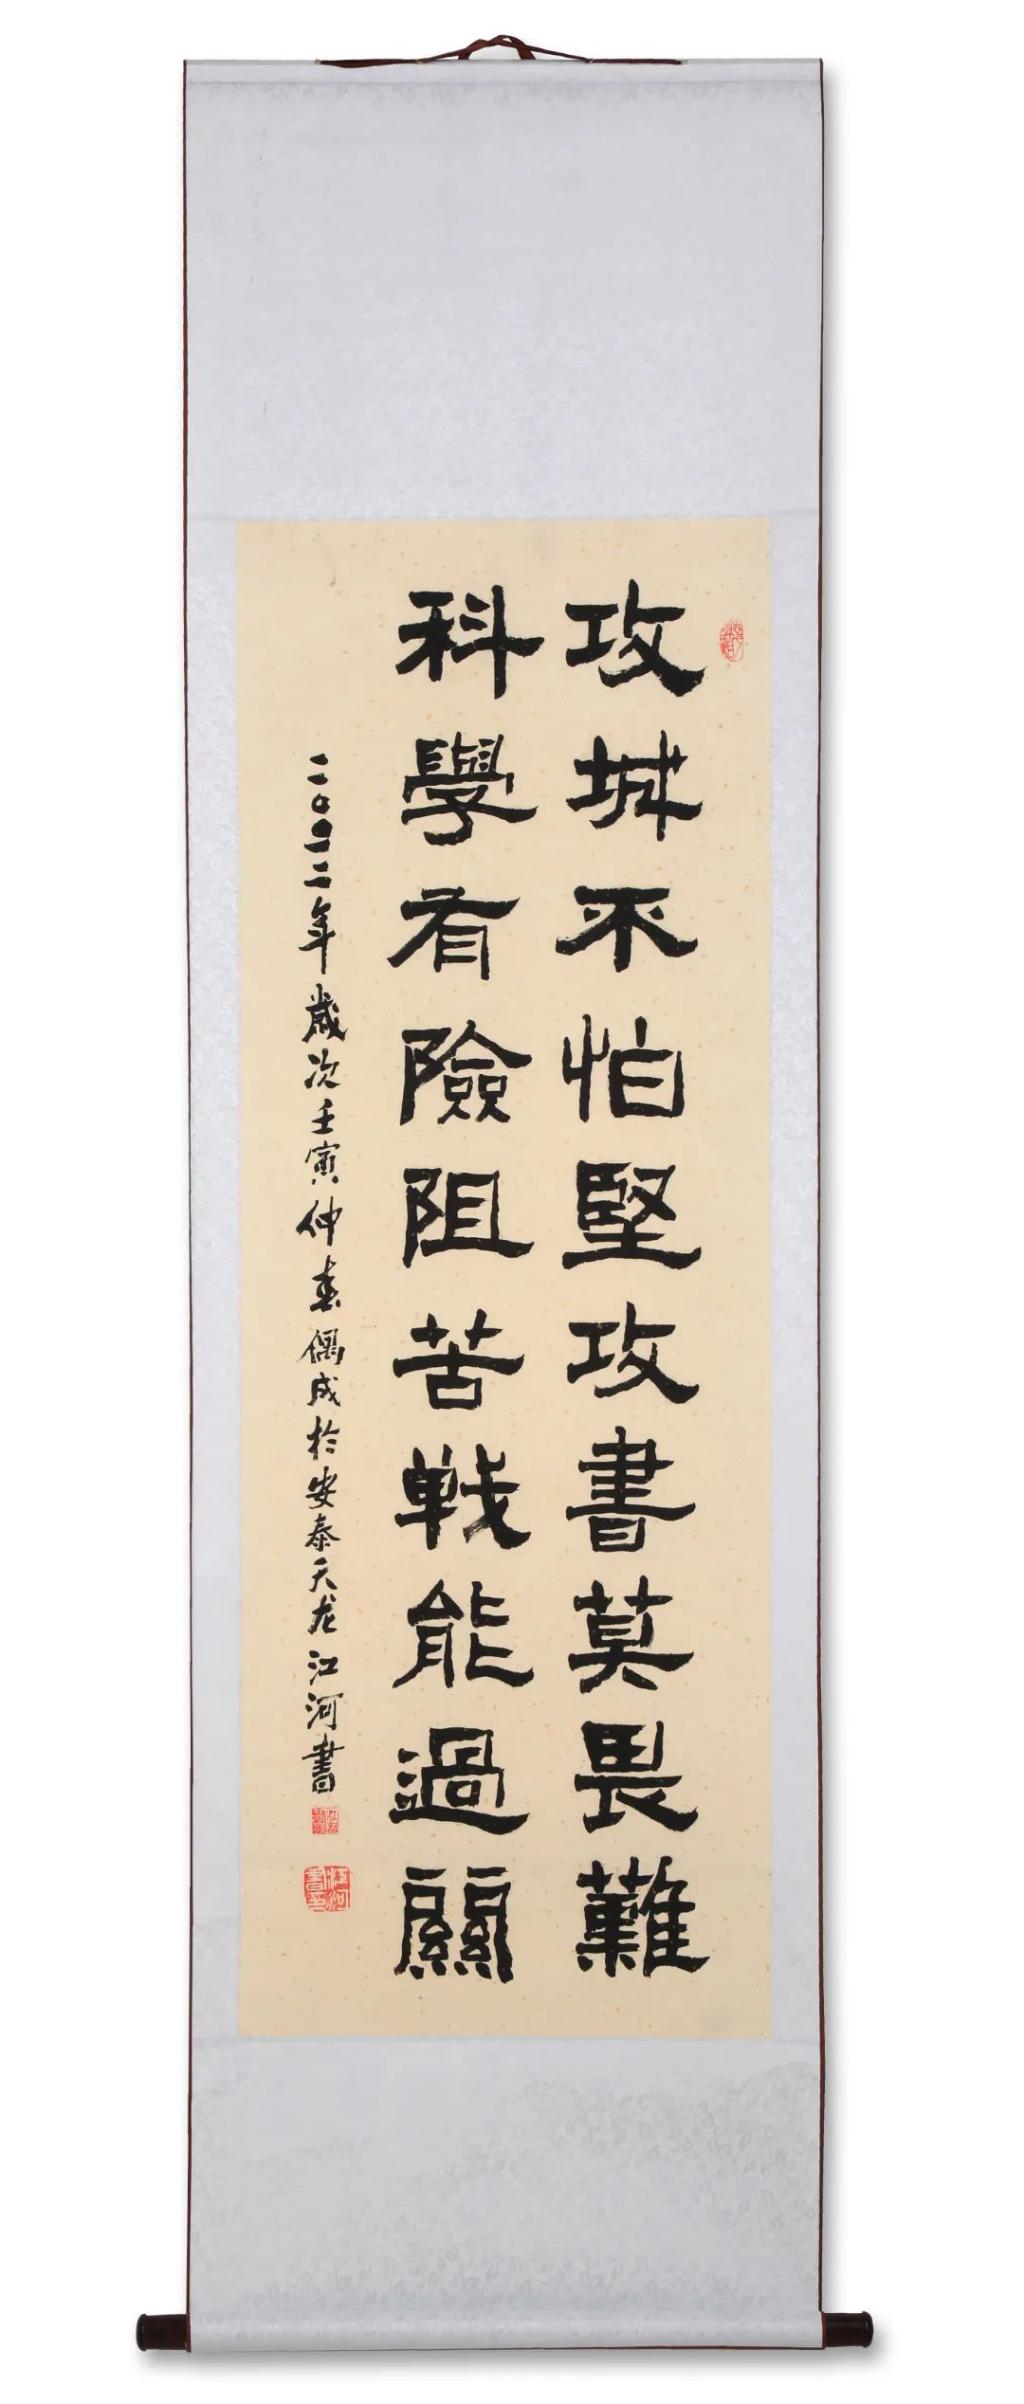 攻城不怕堅攻書莫畏難
科學有險阻苦戰能過關
二〇二二年歲次壬寅仲春偶成於安泰天龙江河書
江河書印